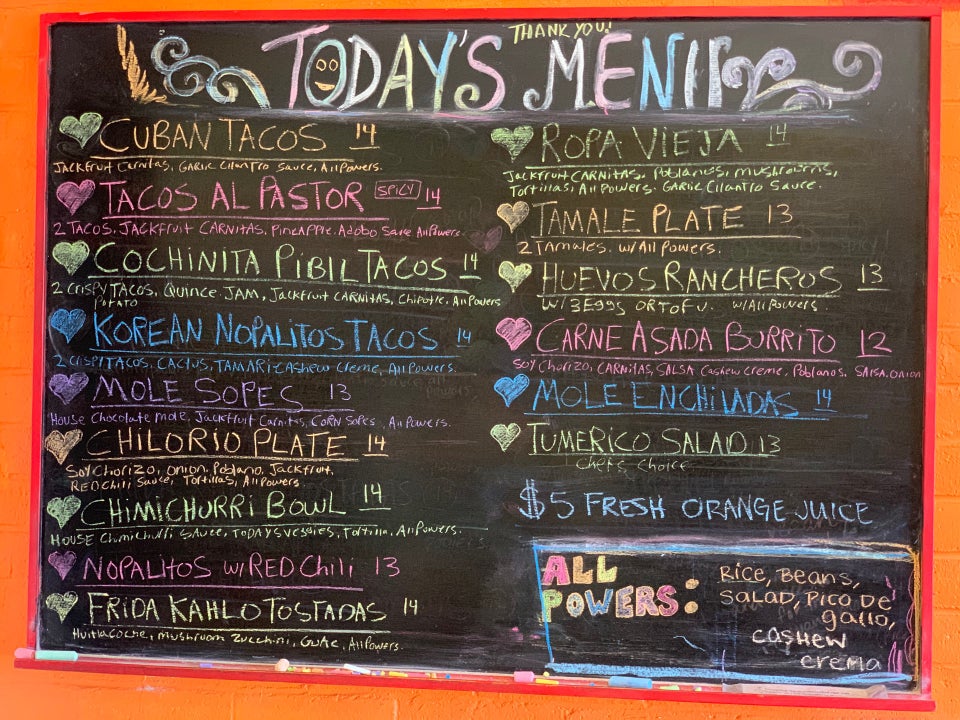 THANK YOU!
TODAY'S MENU
CUBAN TACOS 14
JACKFRUIT CARNITAS, GARLIC CILANTRO SAUCE, All Powers.
TACOS AL PASTOR SPICY 14
2 TACOS, JACKFRUIT CARNITAS, PINEAPPLE, Adobo Sauce All Powers.
COCHINITA PIBIL TACOS 14
2 CRISPY TACOS, QUINCE JAM, JACKFRUIT CARNITAS, CHIPOTLE, All Powers
POTATO
KOREAN NOPALITOS TACOS 14
2 CRISPY TACOS, CACTUS, TAMARI CASHEW CREME, All Powers.
MOLE SOPES 13
HOUSE Chocolate mole, Jackfruit Carnitas, CORN Sopes, All Powers.
CHILORIO PLATE 14
SOY Chorizo, onion, Poblano, Jackfruit,
RED Chili Sauce, Tortillas, All Powers
CHIMICHURRI BOWL 14
HOUSE Chimichurri SAUCE, TODAYS VEGGIES, Tortilla, All Powers.
NOPALITOS w/ RED Chili 13
FRIDA KAHLO TOSTADAS 14
Huitlacoche, mushroom Zucchini, Guac, All Powers.
ROPA VIEJA 14
JACKfruit CARNITAS, Poblanos, mushrooms,
Tortillas, All Powers. GARLIC Cilantro SAUCE.
TAMALE PLATE 13
2 Tamales. w/ All Powers.
HUEVOS RANCHEROS 13
W/ 3 Eggs OR TOFU. w/ All Powers.
CARNE ASADA BURRITO 12
SOY Chorizo, CARNITAS, SALSA Cashew creme, Poblanos. SALSA. ONION
MOLE ENCHILADAS 14
TUMERICO SALAD 13
Chefs Choice
$5 FRESH ORANGE JUICE
ALL
POWERS:
RICE, BEANS,
SALAD, PICO DE
gallo,
CASHEW
crema